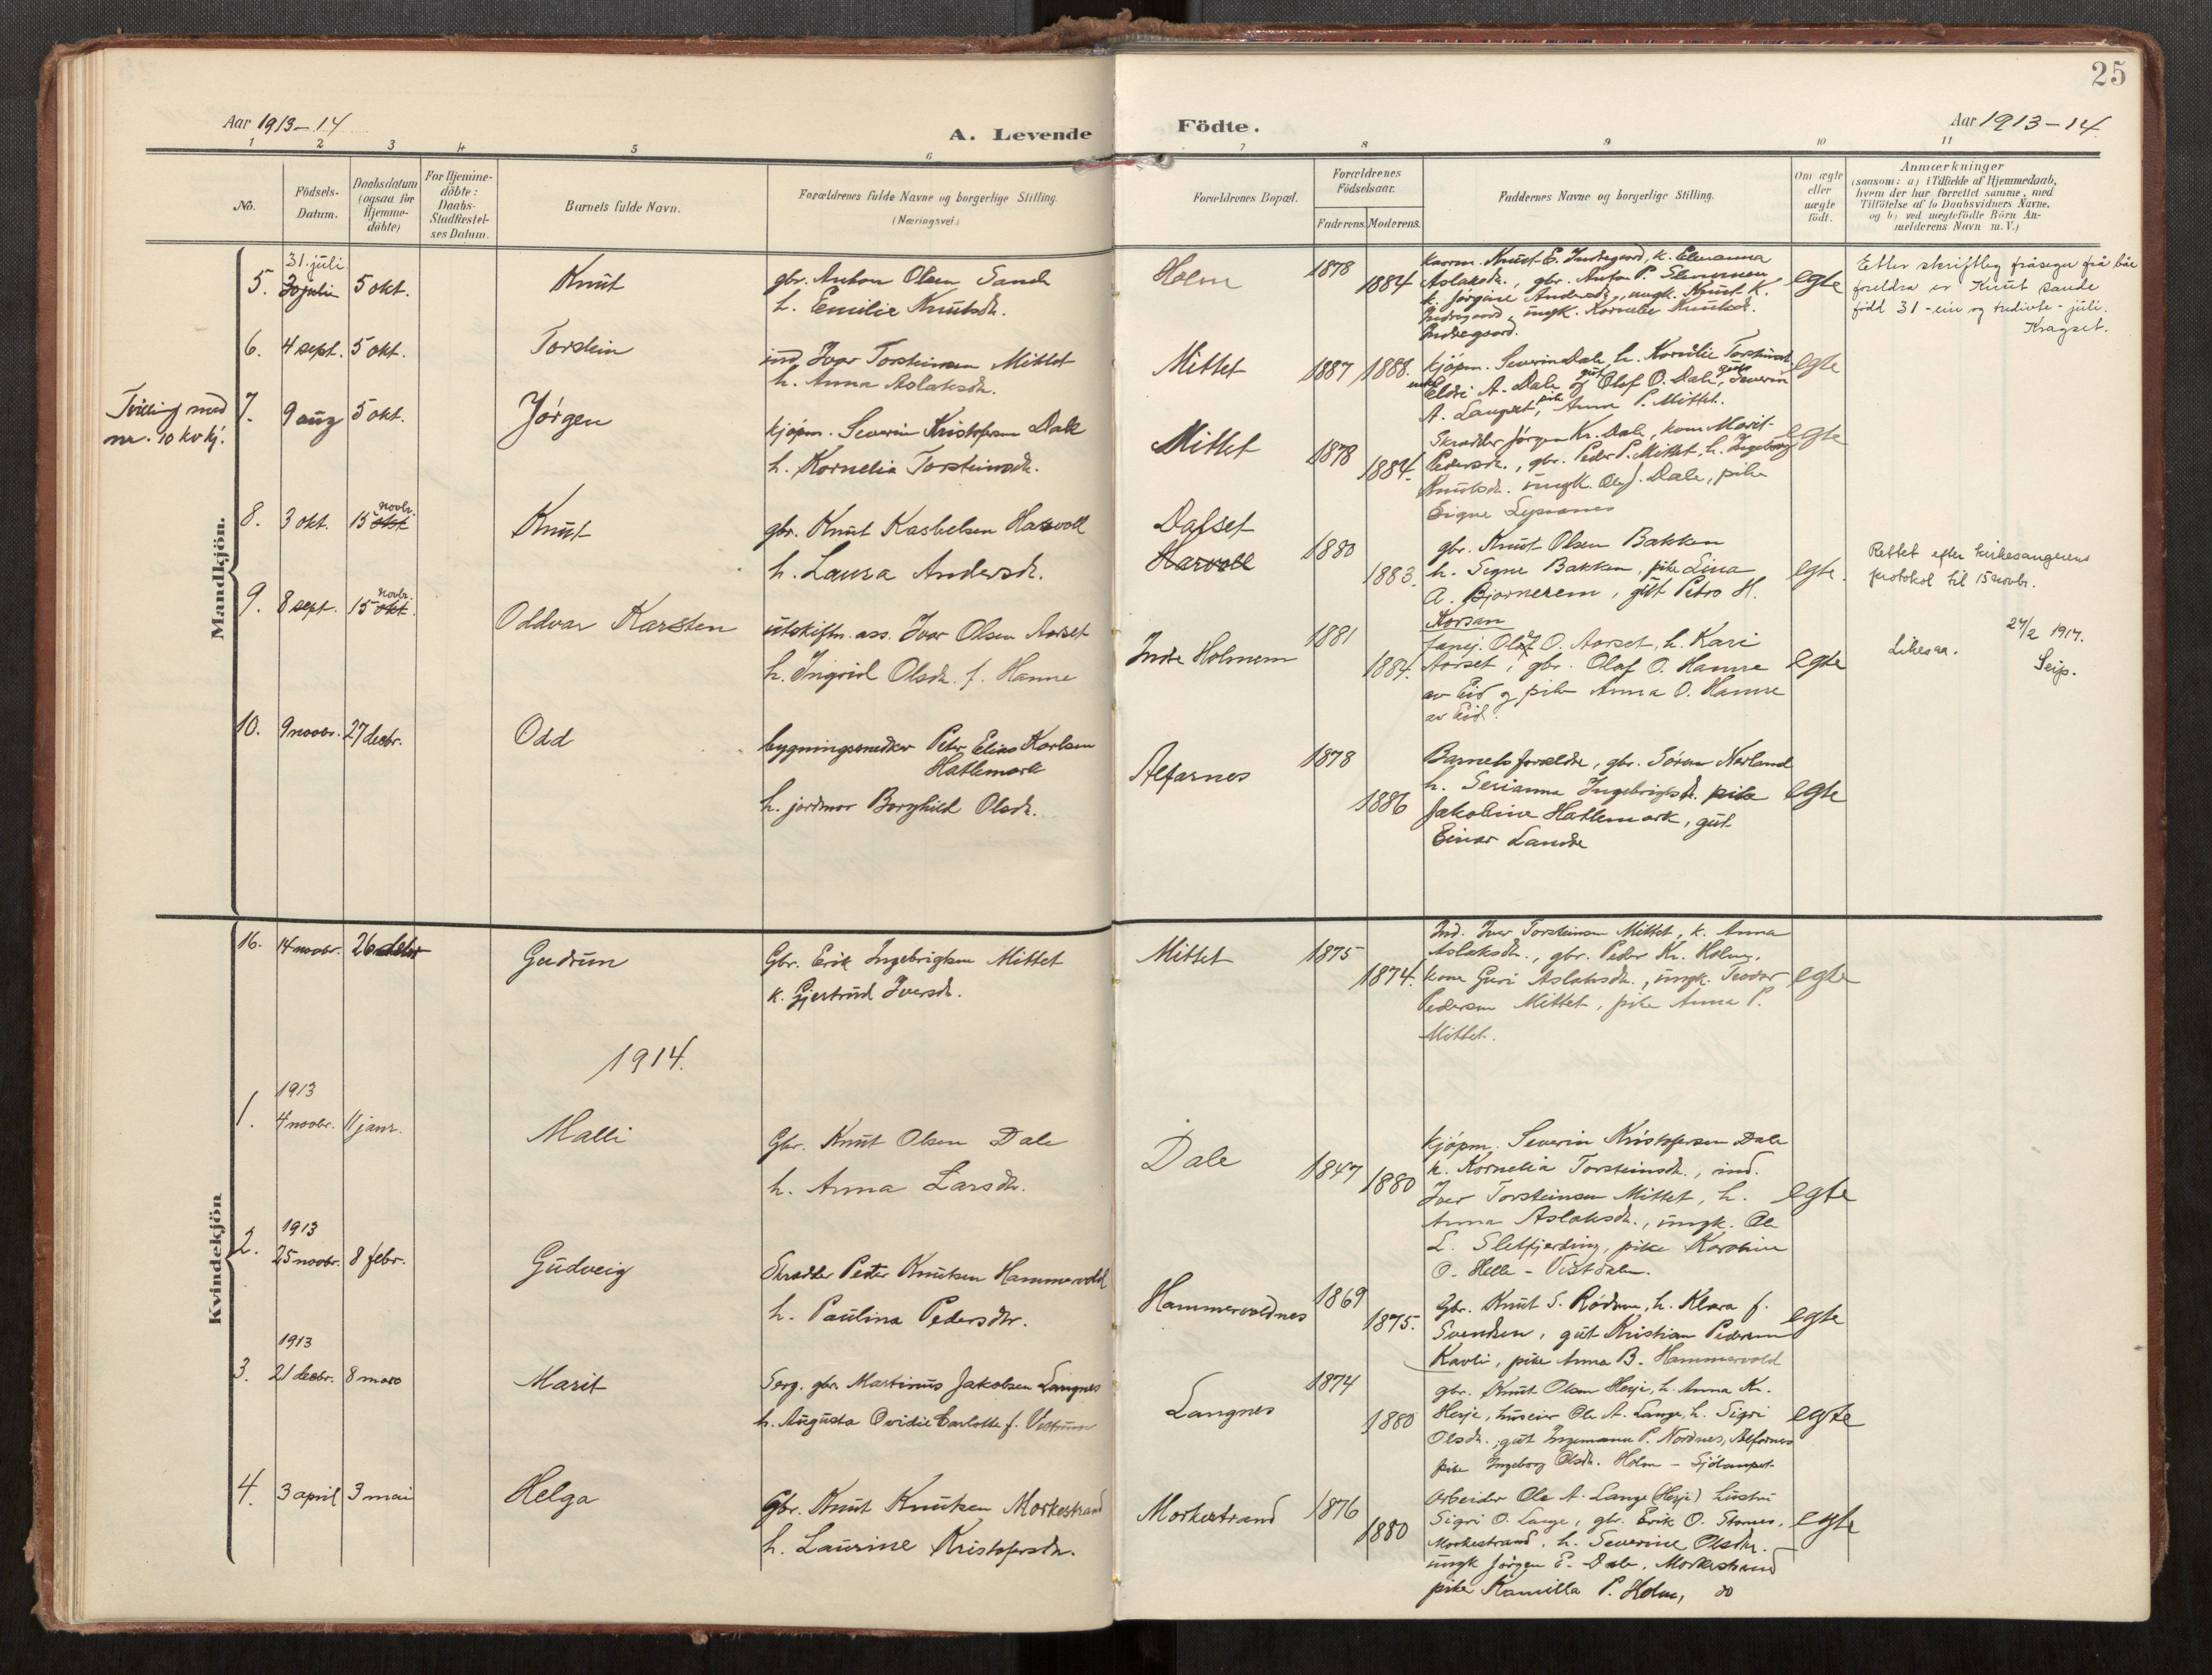 25
Aar 1913-14
A. Levende
Födte.
Aar 1913-14.
1 2 3 4 5 6 7 8 9 10 11
No.
Födsels-
Datum.
Daabsdatum
(ogsaa for
Hjemme-
döbte)
For Hjemme-
döbte:
Daabs-
Stadfæstel-
ses Datum.
Barnets fulde Navn.
Forældrenes fulde Navne og borgerlige Stilling.
(Næringsvei.)
Forældrenes Bopæl.
Forældrenes
Födselsaar.
Faderens. Moderens.
Faddernes Navne og borgerlige Stilling.
Om ægte
eller
uægte
födt.
Anmærkninger
(saasom: a) i Tilfælde af Hjemmedaab,
hvem der har forrettet samme, med
Tilföielse af to Daabsvidners Navne,
og b) ved uægtefödte Börn An-
melderens Navn m. V.)
Mandkjön.
31. juli
5. 30 juli 5 okt.
Knut
gbr. Anton Olsen Sande
h. Emilie Knutsdr.
Holm
1878
1884
Aslaksdr., gbr. Anton P.
k. Jørgine Andersdr., ungk. Knut K.
ungk. Kornelie Knutsd.
egte
Etter skriftleg fråsegn frå båe
foreldra er Knut Sande
født 31 - ein og tredivte - juli.
Kragset.
6. 4 sept. 5 okt.
Torstein
ind. Ivar Torsteinsen Mittet
h. Anna Aslaksdr.
Mittet
1887 1888.
kjøpm. Severin Dale, h. Kornelie Torsteinsdr.
Eldri A. Dale og gut Olof O. Dale, Severin
A. Langset, pike Anna P. Mittet.
egte
Tvilling med
nr. 10 kv kj.
7. 9 aug 5 okt.
Jørgen
kjøpm. Severin Kristofersen Dale
h. Kornelia Torsteinsdr.
Mittet
1878
1884.
Skrædder Jørgen Kr. Dale, kone Marit
Pedersdr., gbr. Peder P. Mittet, h. Ingeborg
Knutsdr. ungk. Ole J. Dale, pike
Signe
egte
8. 3 okt. 15 novbr. okt
Knut
gbr. Knut Kasbelsen Harvoll
h. Laura Andersdr.
Dalset
Harvoll
1880
1883.
gbr. Knut Olsen Bakken
h. Signe Bakken, pike Lina
A. Bjørnerem, gut Petro H.
Korsan
egte.
Rettet efter kirkesangerens
protokol til 15 novbr.
9. 8 sept. 15 novbr. okt.
Oddvar Karsten
utskiftn. ass. Ivar Olsen Aarset
h. Ingrid Olsdr. f. Hanne
Indre Holmem
1881
1884.
Olaf O. Aarset, h. Kari
Aarset, gbr. Olaf O. Hanne
av Eid og pike Anna O. Hanne
av Eid.
egte
Likesaa.
24/2 1914.
Seip.
10. 9 novbr. 27 decbr.
Odd
bygningssnedker Peter Elias Karlsen
Hatlemark
h. jordmor Borghild Olsdr.
Alfarnes
1878
1886
Barnets forældre, gbr. Søren Nerland
h. Serianna Ingebrigtsd. pike
Jakobine Hatlemark, gut
Einar Lande
egte
Kvindekjön
16. 14 novbr. 26 decbr
Gudrun
Gbr. Erik Ingebrigtsen Mittet
k. Gjertrud Iversdr.
Mittet
1875
1874.
Ind. Iver Torsteinsen Mittet, k. Anna
Aslaksdr., gbr. Peder Kr. Holm,
kone Guri Aslaksdr., ungk. Teodor
Pedersen Mittet, pike Anna P.
Mittet.
egte
1914.
1913
1. 4 novbr. 11 janr.
Malli
Gbr. Knut Olsen Dale
h. Anna Larsdr.
Dale
1847
1880
kjøpm. Severin Kristofersen Dale
h. Kornelia Torsteinsdr., ind.
Iver Torsteinsen Mittet, h.
Anna Aslaksdr., ungk. Ole
L. Sletfjerding, pike Karoline
O. Helle - Vistdalen.
egte
1913
2. 25 novbr. 8 febr.
Gudveig
Skrædder Peder Knutsen Hammervold
h. Paulina Pedersdtr.
Hammervoldnes
1869
1875.
Gbr. Knut S. Rødven, h. Klara f.
Svendsen, gut Kristian Pedersen
Kavli, pike Anna B. Hammervold
egte
1913
3. 21 decbr. 8 mars
Marit
Serg. gbr. Martinus Jakobsen Langnes
h. Augusta Ovidie Carlotte f.
Langnes
1874
1880
gbr. Knut Olsen Herje, h. Anna Kr.
Herje, huseier Ole A. Lange, h. Sigri
Olsdr., gut Ingemann P. Nordnes, Alfarnes
pike Ingeborg Olsdr. Holm -
egte
4. 3 april 3 mai
Helga
Gbr. Knut Knutsen Morkestrand
h. Laurine Kristofersdr.
Morkestrand
1876
1880
Arbeider Ole A. Lange (Herje) hustru
Sigri O. Lange, gbr. Erik O. Stornes,
Morkestrand, h. Severine Olsdtr.
ungk Jørgen E. Dale, Morkestrand
pike Kamilla P. Holm, do
egte